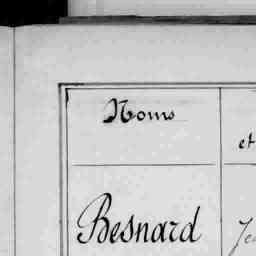 Noms
et
Besnard
Je